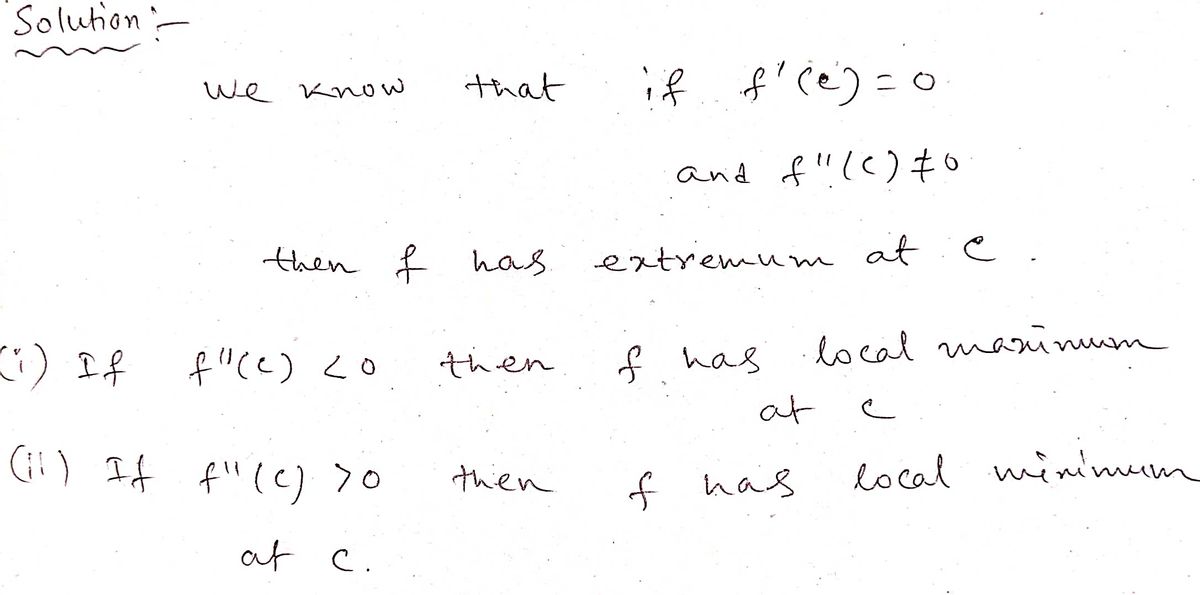 Solution :-
We know that if f'(c) = 0
and f''(c) ≠ 0
then f has extremum at c .
(i) If f''(c) < 0 then f has local maximum
at c
(ii) If f''(c) > 0 then f has local minimum
at c.